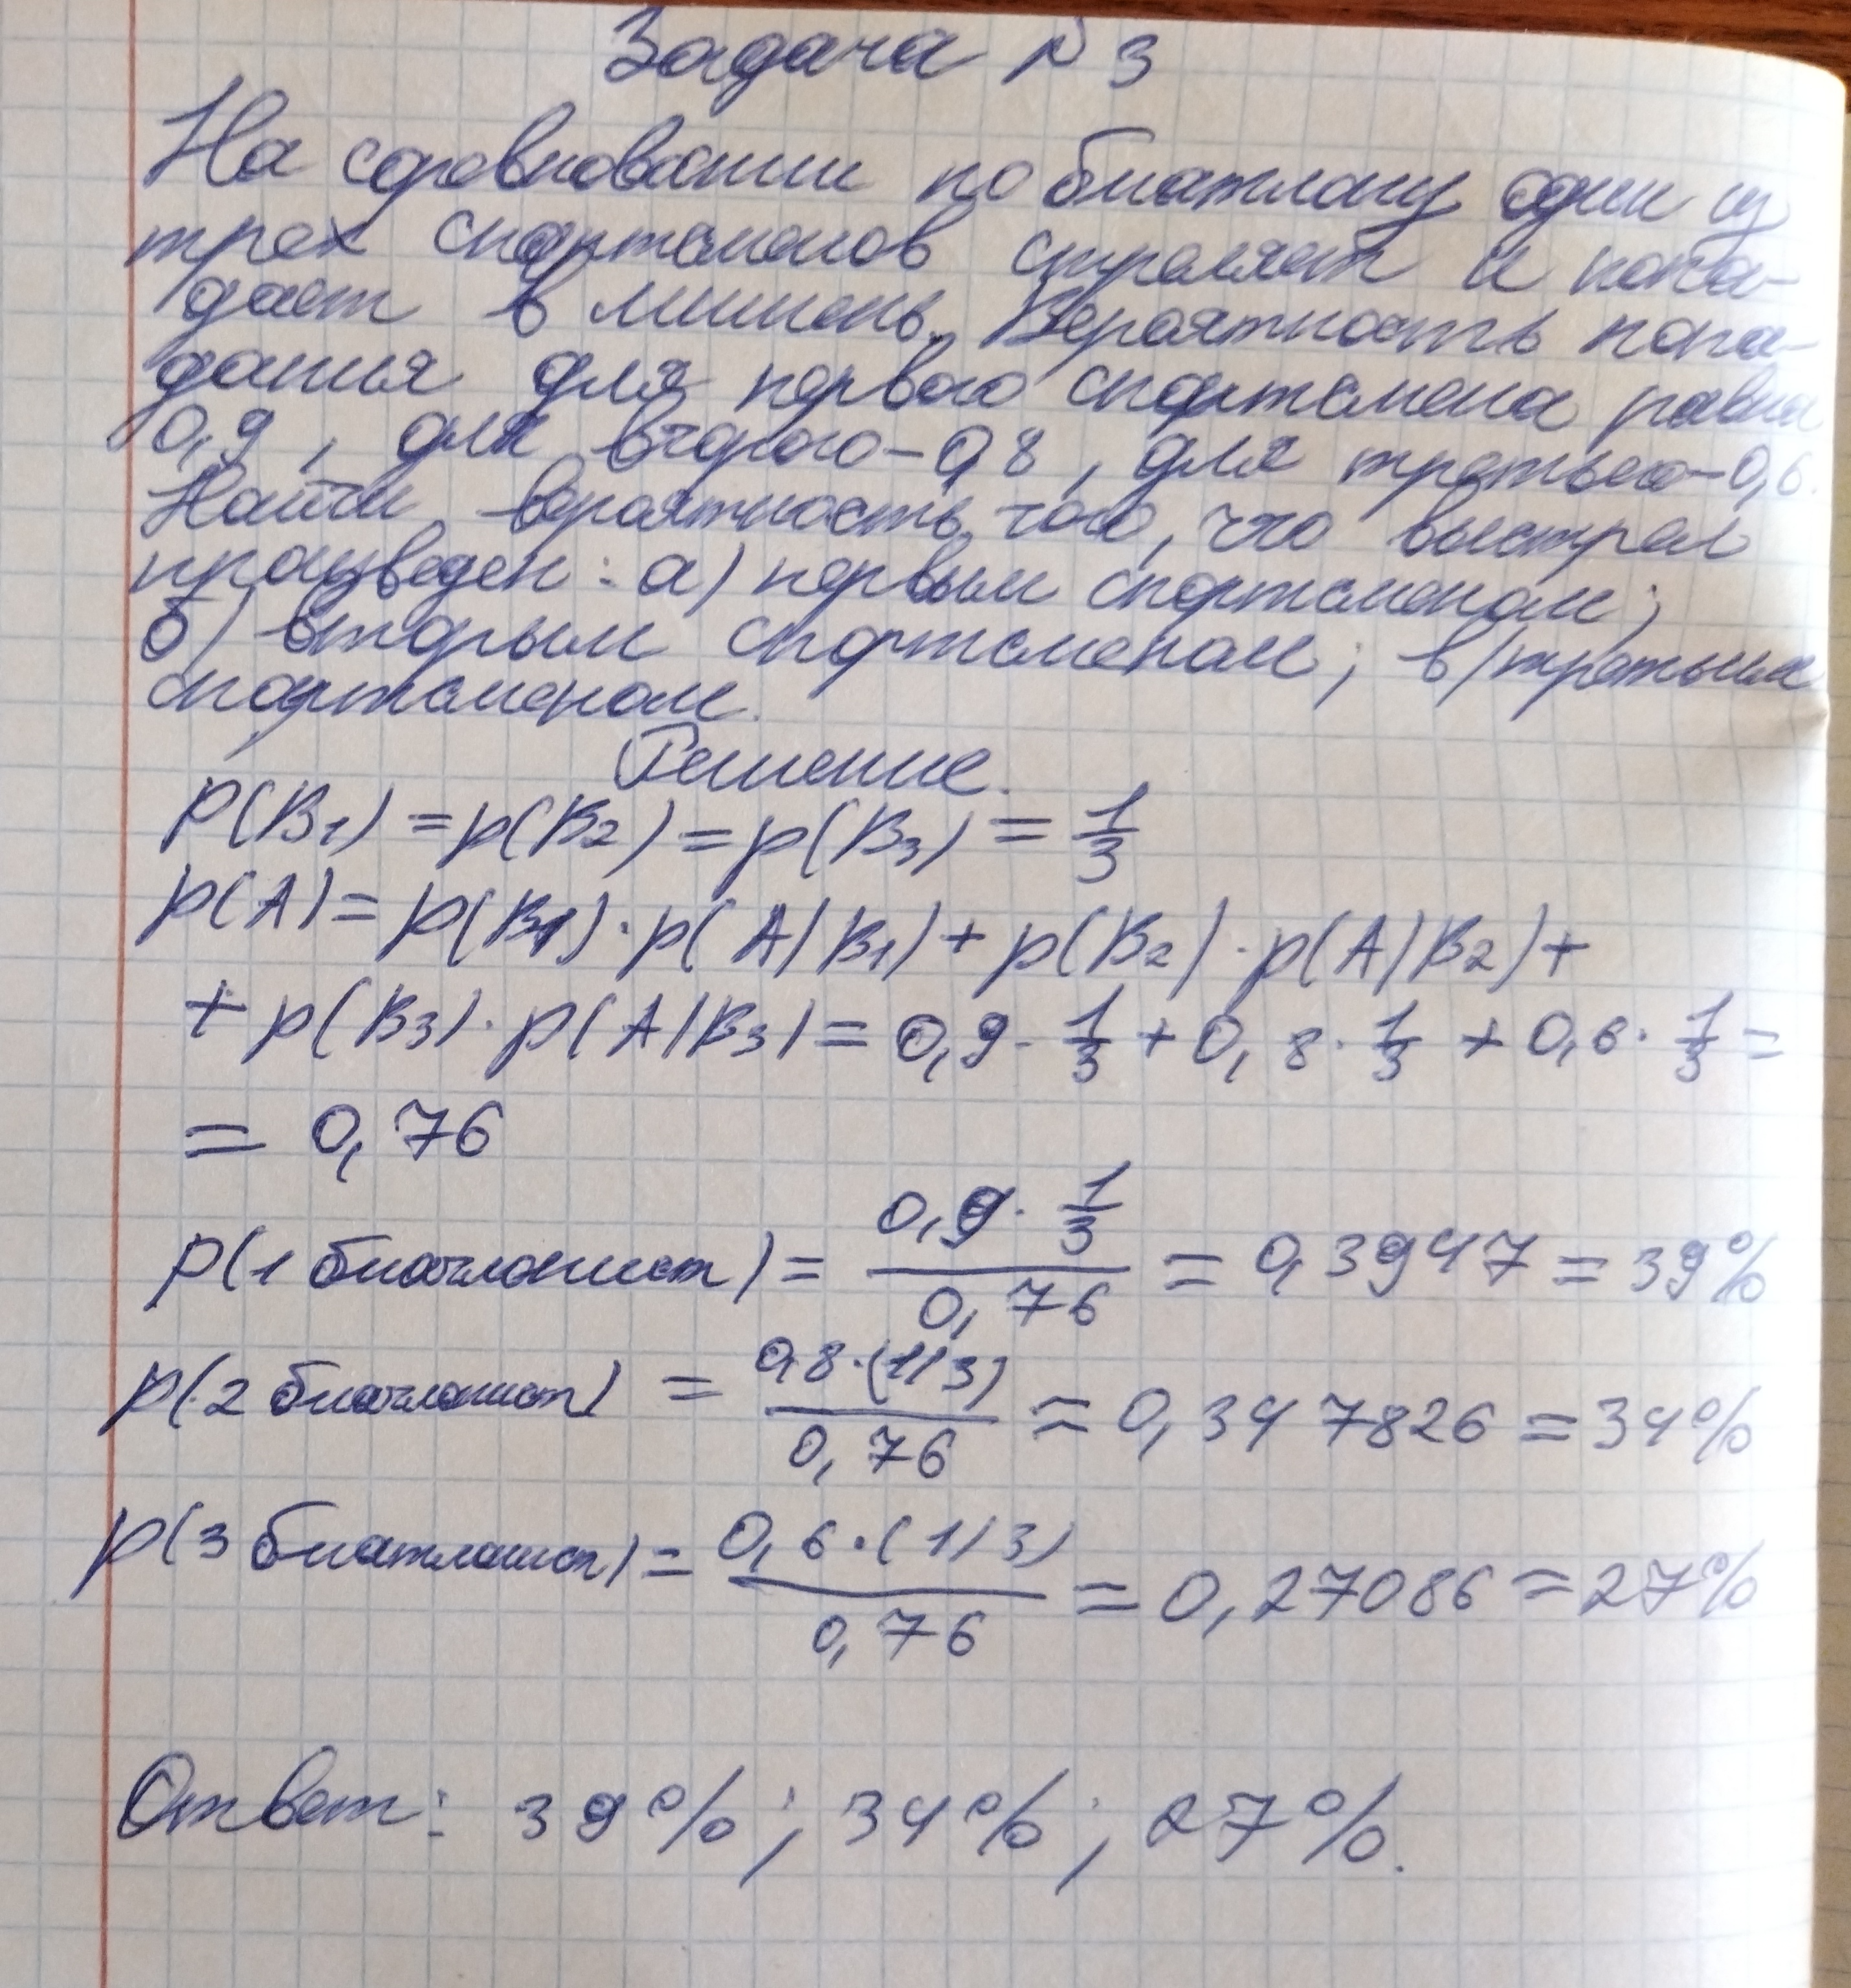 Задача № 3
На соревновании по биатлону один из
трех спортсменов стреляет и попа-
дает в мишень. Вероятность попа-
данья для первого спортсмена равна
0,9, для второго - 0,8, для третьего - 0,6.
Найти вероятность того, что выстрел
произведен: а) первым спортсменом;
б) вторым спортсменом; в) третьим
спортсменом.
Решение.
P(B₁) = p(B₂) = p(B₃) = 1/3
p(A) = p(B₁) · p(A|B₁) + p(B₂) · p(A|B₂) +
+ p(B₃) · p(A|B₃) = 0,9 · 1/3 + 0,8 · 1/3 + 0,6 · 1/3 =
= 0,76
p(1 биатлонист) = 0,9 · 1/3 / 0,76 = 0,3947 = 39%
p(2 биатлонист) = 0,8 · (1/3) / 0,76 = 0,347826 = 34%
p(3 биатлонист) = 0,6 · (1/3) / 0,76 = 0,27086 = 27%
Ответ: 39%; 34%; 27%.